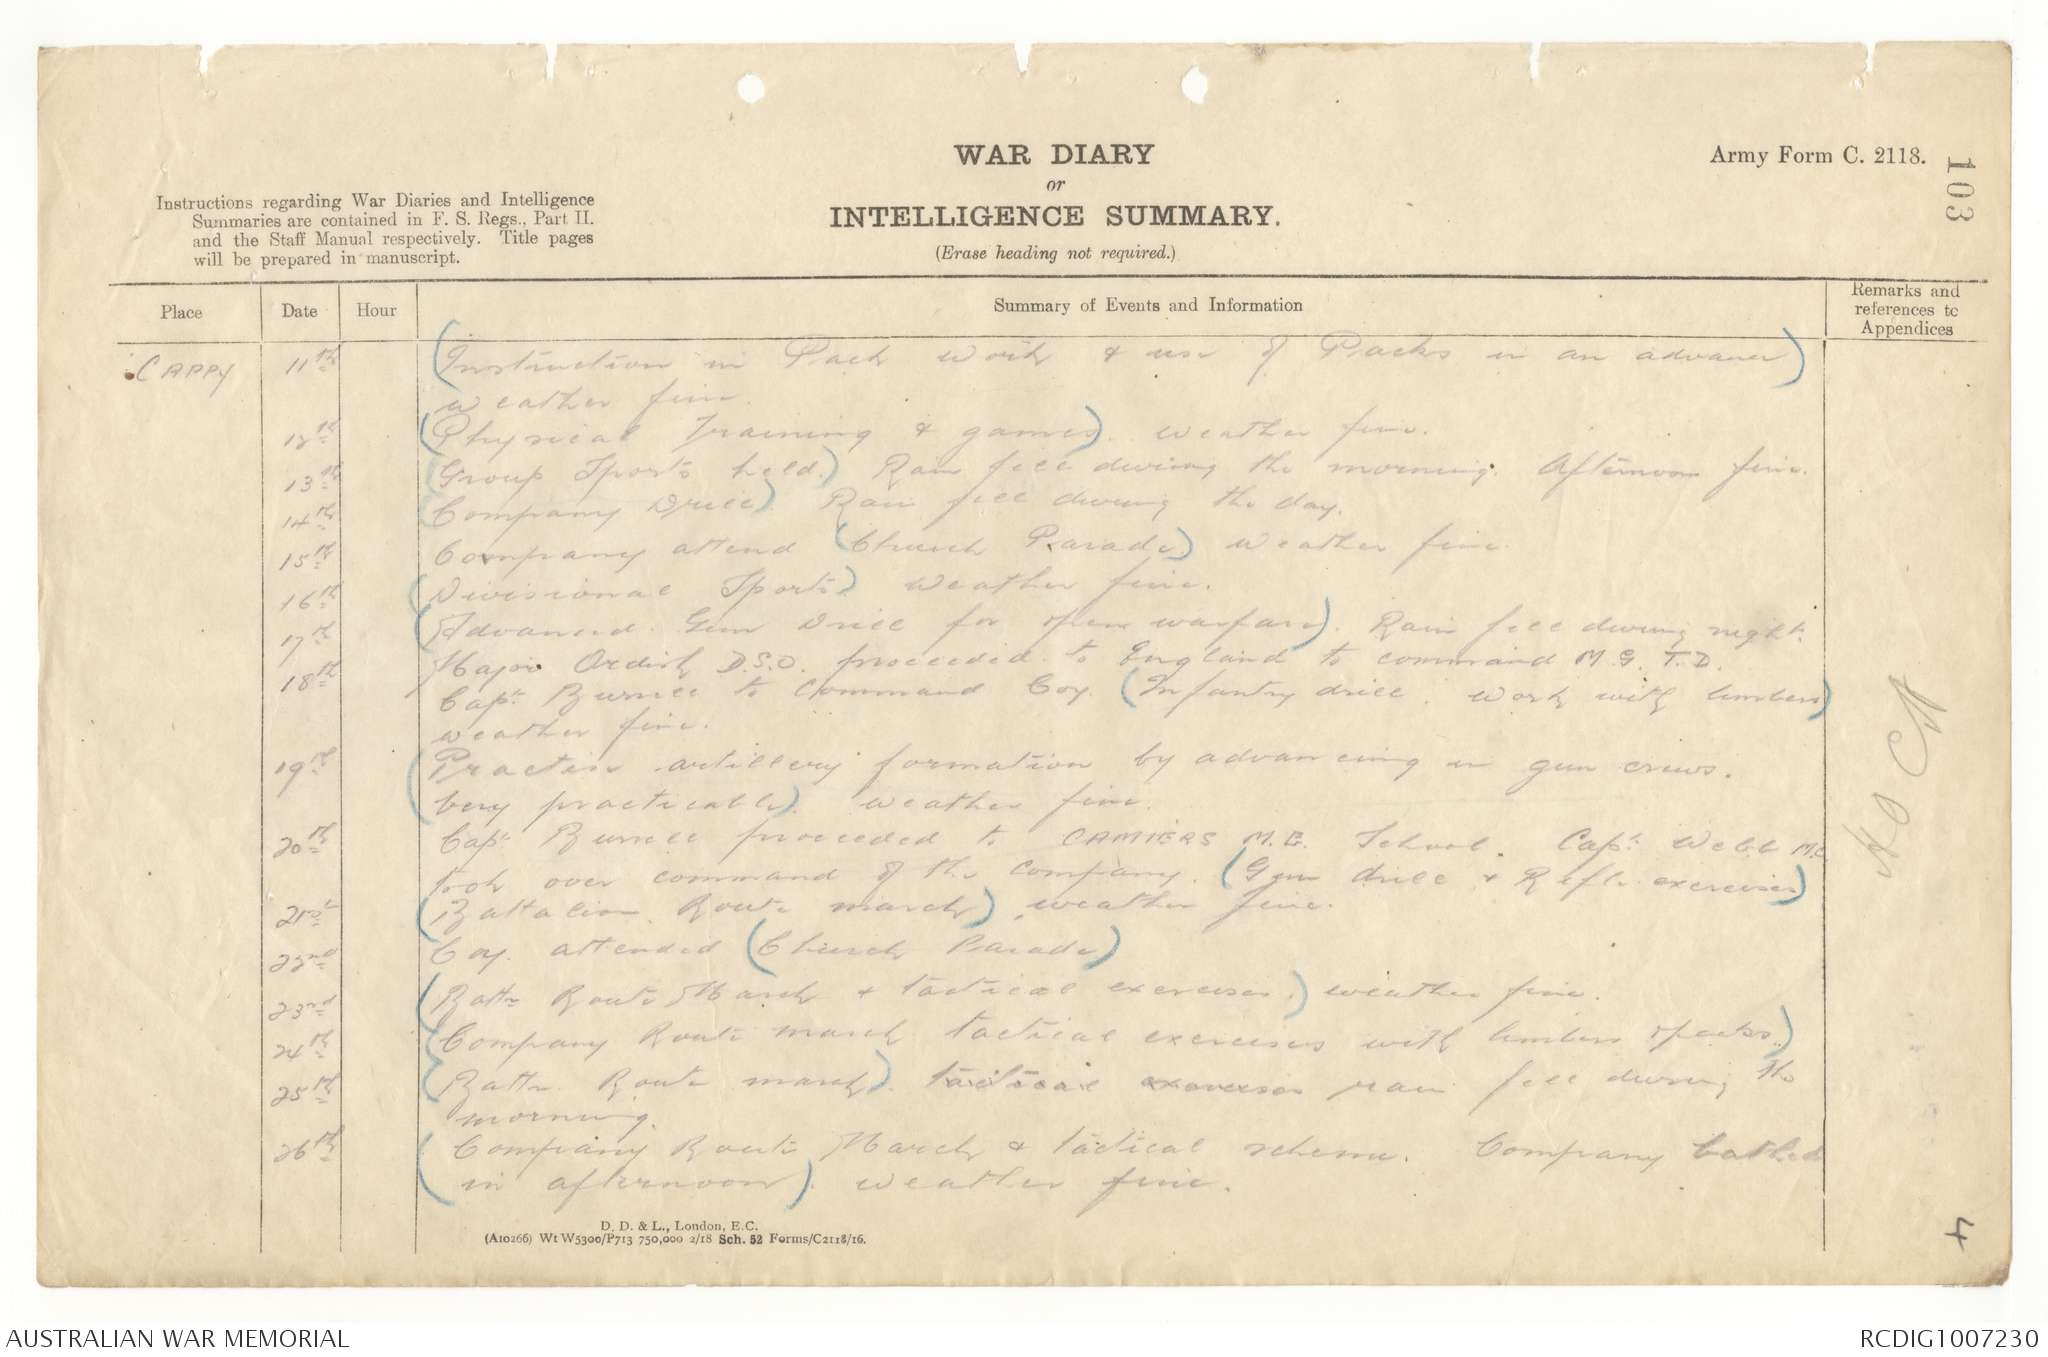 WAR DIARY
or
INTELLIGENCE SUMMARY.
(Erase heading not required.)
Army Form C. 2118.
103
Instructions regarding War Diaries and Intelligence
Summaries are contained in F. S. Regs., Part II.
and the Staff Manual respectively. Title pages
will be prepared in manuscript.
Place Date Hour Summary of Events and Information Remarks and references to Appendices
CAPPY 11th (Instruction in Pack work & use of Packs in an advance)
weather fine.
12th (Physical Training & games). weather fine.
13th (Group Sports held.) Rain fell during the morning. Afternoon fine.
14th (Company Drill) Rain fell during the day.
15th Company attend (Church Parade) weather fine.
16th (Divisional Sports) weather fine.
17th (Advanced Gun Drill for open warfare). Rain fell during night.
18th Major Ordish D.S.O. proceeded to England to command M.G.T.D.
Capt. Burrell to command Coy. (Infantry drill. work with limbers)
weather fine.
19th (Practise artillery formation by advancing in gun crews.
Very practicable). weather fine.
20th Capt. Burrell proceeded to CAMIERS M.G. School. Capt. Webb M.C
took over command of the company. (Gun drill & Rifle exercises)
21st (Battalion Route march) weather fine.
22nd Coy. attended (Church Parade)
23rd (Battn Route March & tactical exercises.) weather fine.
24th (Company Route march tactical exercises with limbers & packs.)
25th (Battn. Route march) tactical exercises rain fell during the
morning.
26th (Company Route March & tactical scheme. Company bathed
in afternoon). weather fine.
4
D. D. & L., London, E.C.
(A10266) Wt W5300/P713 750,000 2/18 Sch. 52 Forms/C2118/16.
AUSTRALIAN WAR MEMORIAL
RCDIG1007230